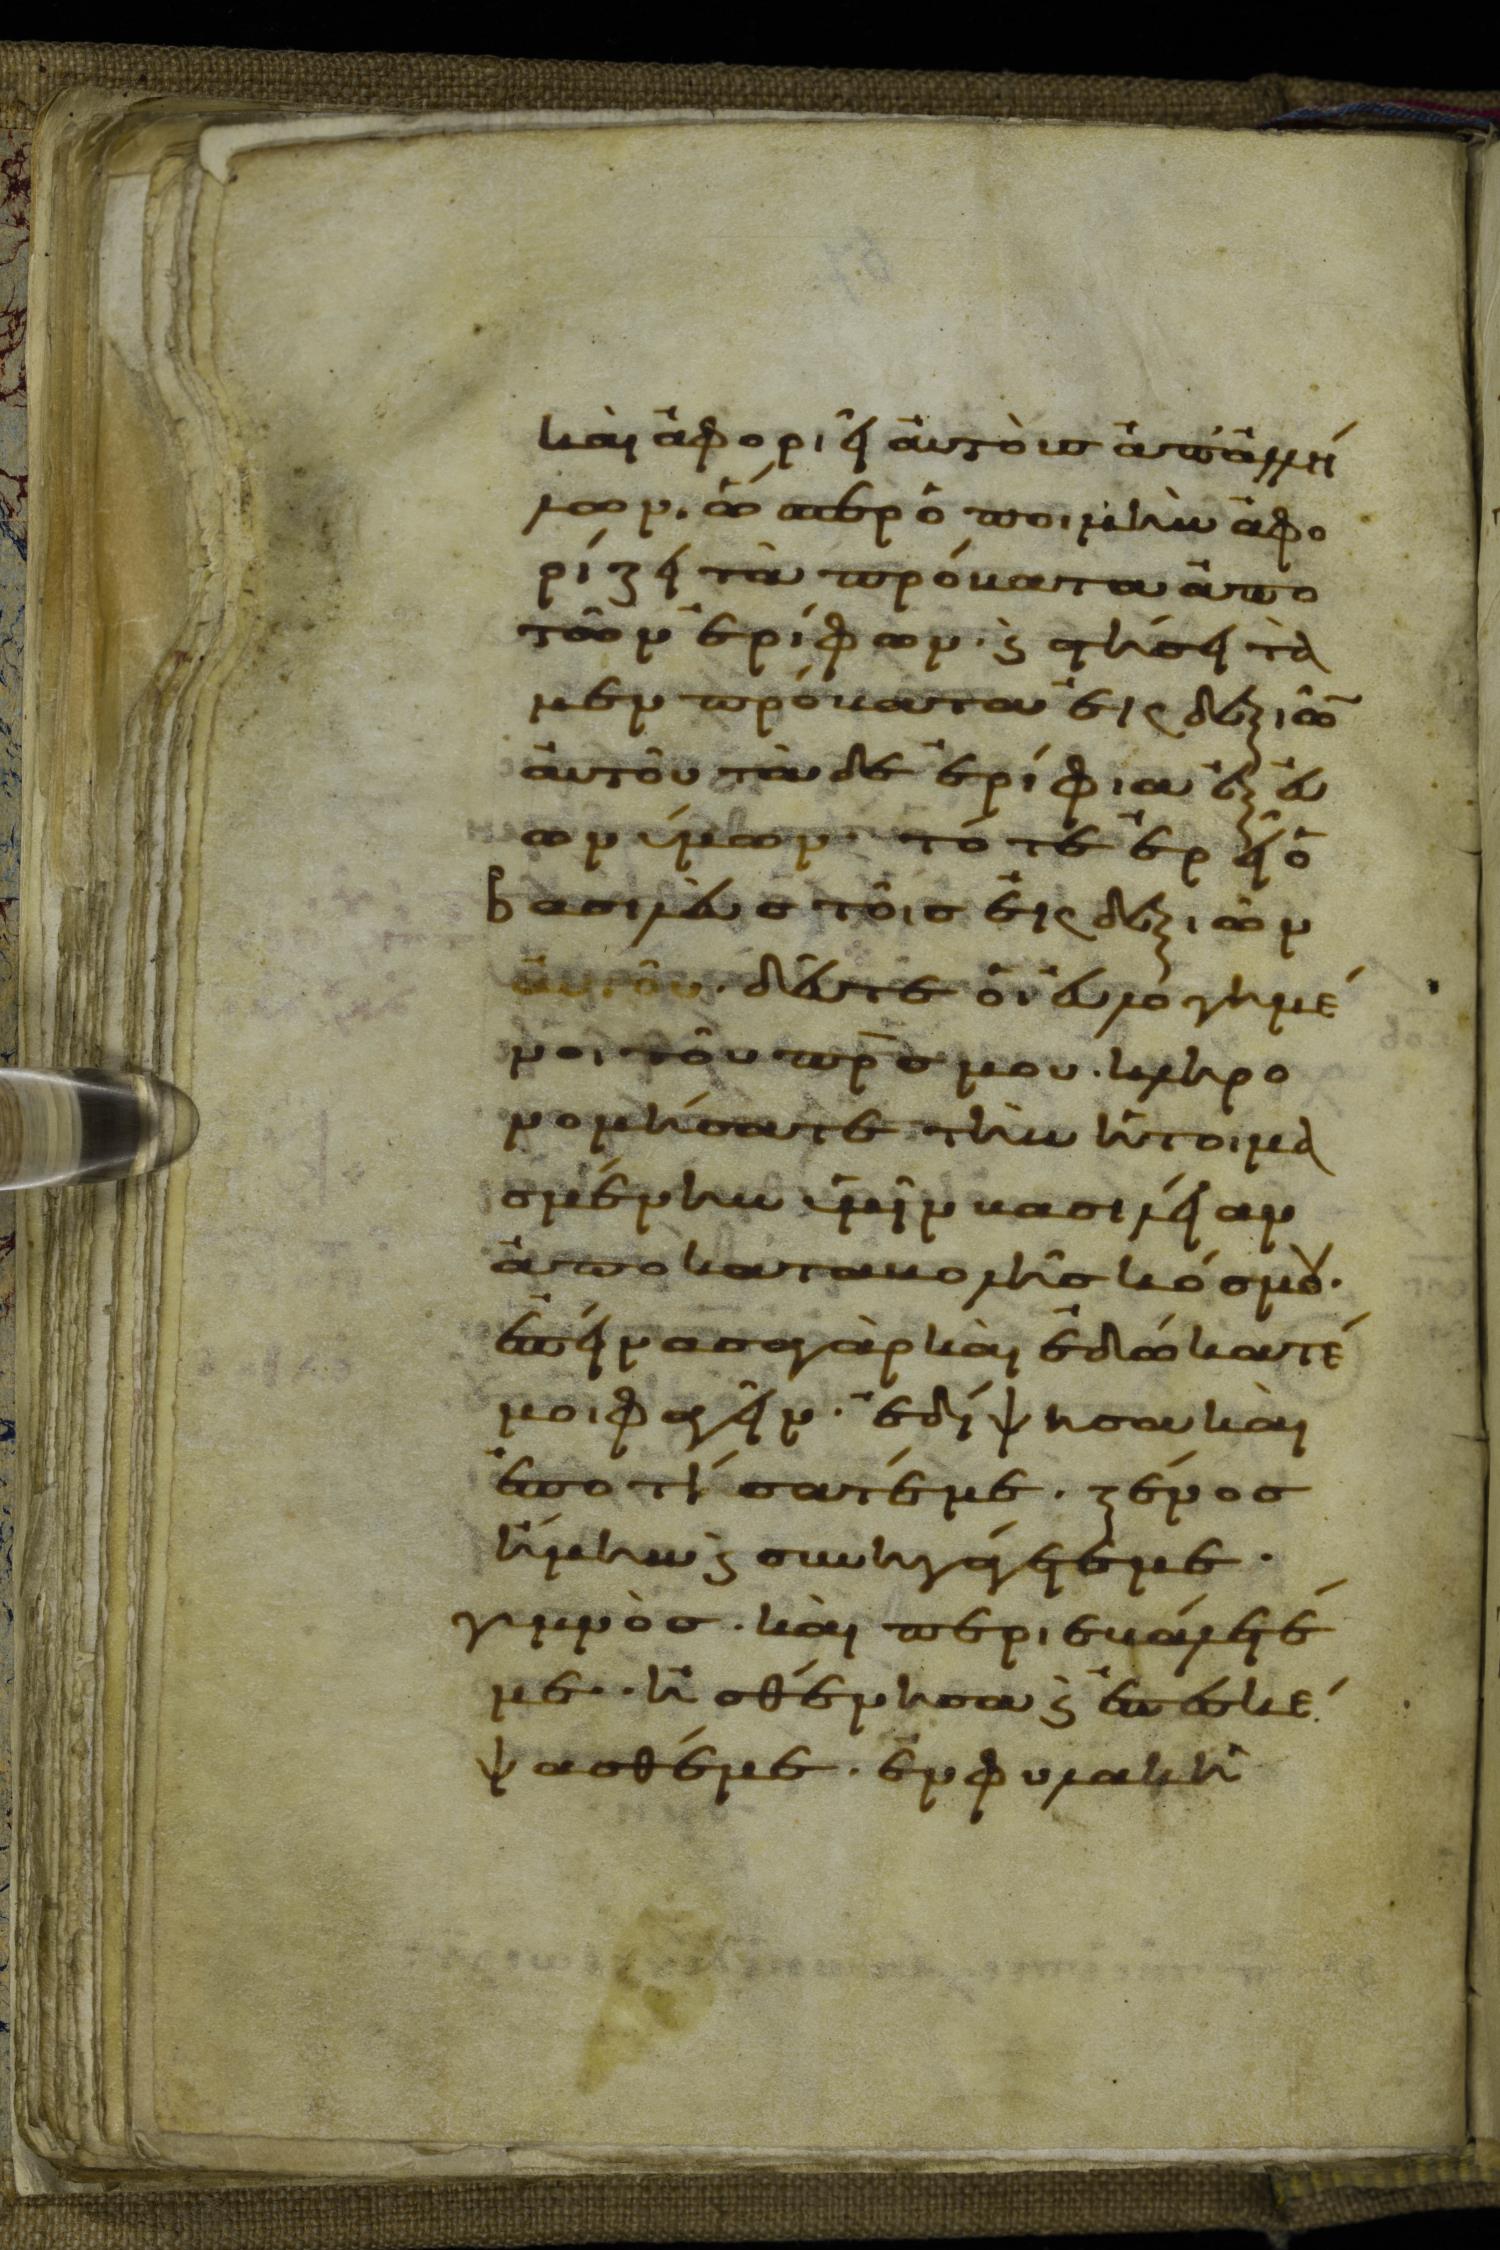 καὶ ἀφοριεῖ αὐτοὺς ἀπ' ἀλλή
λων. ὥσπερ ὁ ποιμὴν ἀφο
ρίζει τὰ πρόβατα ἀπο
τῶν ἐρίφων. ϗ στήσει τὰ
μεν πρόβατα εἰς δεξιῶ̅
αὐτοῦ τὰ δε ἐρίφια ἐξ εὐ
ωνύμων. τότε ἐρεῖ ὁ
βασιλεὺς τοῖς εἰς δεξιῶν
αὐτοῦ. δεῦτε οἱ εὐλογημέ
νοι τοῦ πρ̅σ μου. κληρο
νομήσατε τὴν ἡτοιμα
σμένην ὑμῖν βασιλείαν
ἀπο καταβολῆς κόσμου.
ἐπείνασα γὰρ καὶ ἐδώκατέ
μοι φαγεῖν. ἐδίψησα καὶ
ἐποτίσατέ με. ξένος
ἤμην ϗ συνηγάγετέ με.
γυμνὸς. καὶ περιεβάλετέ
με. ἠσθένησα ϗ ἐπεσκέ
ψασθέ με. ἐν φυλακῆ